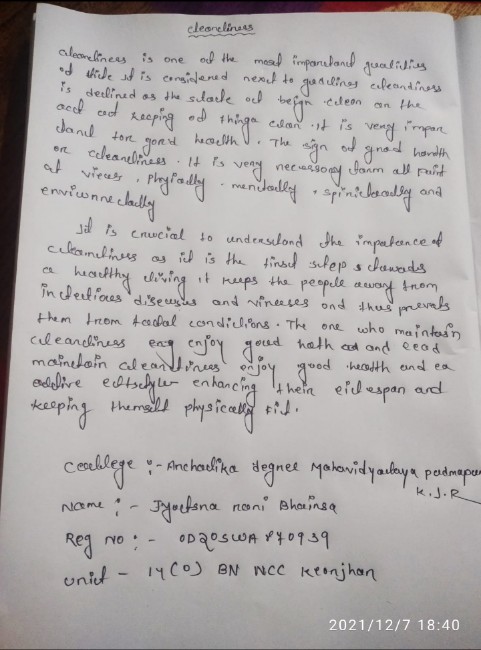 cleanliness
cleanliness is one of the most important qualities
of life It is considered next to godliness cleanliness
is defined as the state of being clean or the
act of keeping of things clean. It is very impor
tant for good health. The sign of good health
or cleanliness. It is very necessary form all point
of views, physically. mentally, spiritually and
environmentally
It is crucial to understand the importance of
cleanliness as it is the first steps towards
a healthy living it keeps the people away from
infections diseases and viruses and thus prevents
them from fatal conditions. The one who maintain
cleanliness enjoy good health and lead
maintain cleanliness enjoy good health and a
active lifestyle enhancing their life span and
keeping themself physically fit.
College :- Anchalika degree Mahavidyalaya padmapur
K.J.R
Name :- Jyotsna rani Bhainsa
Reg No :- OD20SWA870939
Unit - 14(O) BN NCC Keonjhar
2021/12/7 18:40